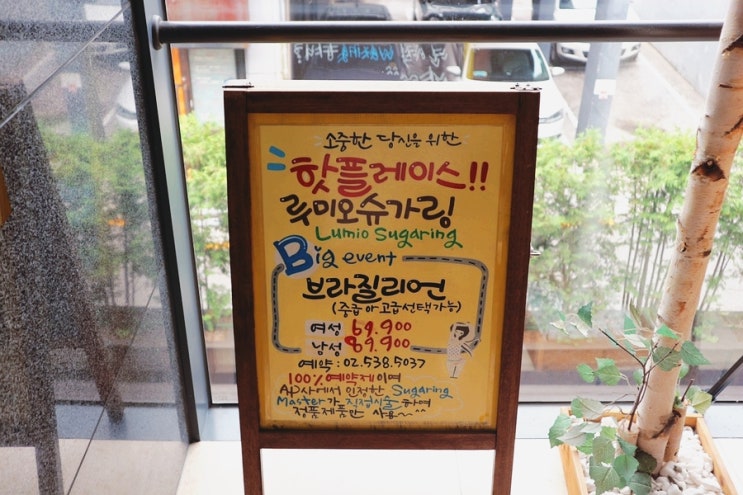 소중한 당신을 위한
핫플레이스!!
루미오슈가링
Lumio Sugaring
Big event
브라질리언
(중급 or 고급선택가능)
여성 69.900
남성 89.900
예약 : 02.538.5037
100% 예약제이며
AP사에서 인정한 Sugaring
Master가 직접시술 하며
정품제품만 사용~^^